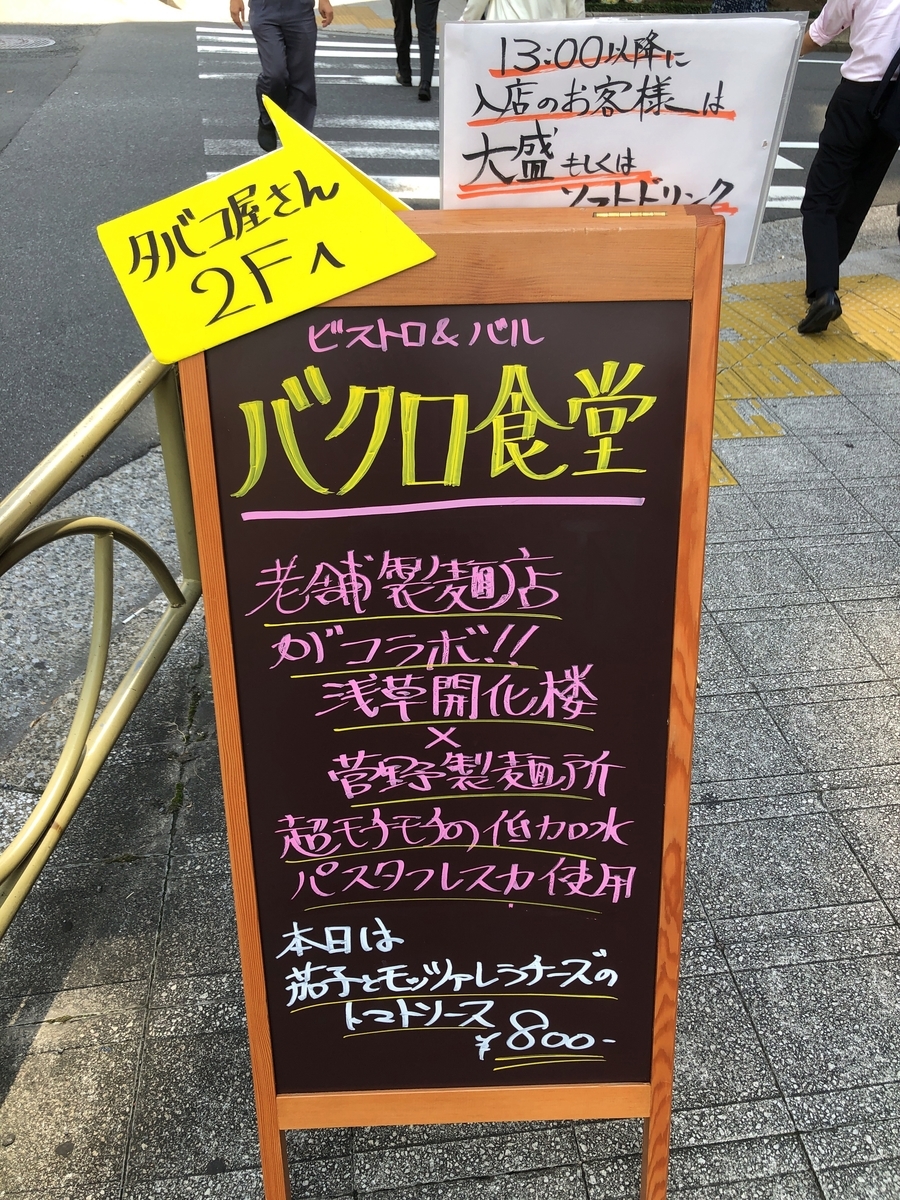 13:00以降に
入店のお客様は
大盛もしくは
ソフトドリンク
タバコ屋さん
2Fへ
ビストロ&バル
バクロ食堂
老舗製麺店
がコラボ!!
浅草開化楼
×
菅野製麺所
超モチモチの低加水
パスタフレスカ使用
本日は
茄子とモッツァレラチーズの
トマトソース
¥800-